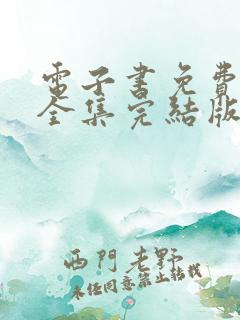 電子書免費
全集完結版
西門老野
未經同意禁止轉載